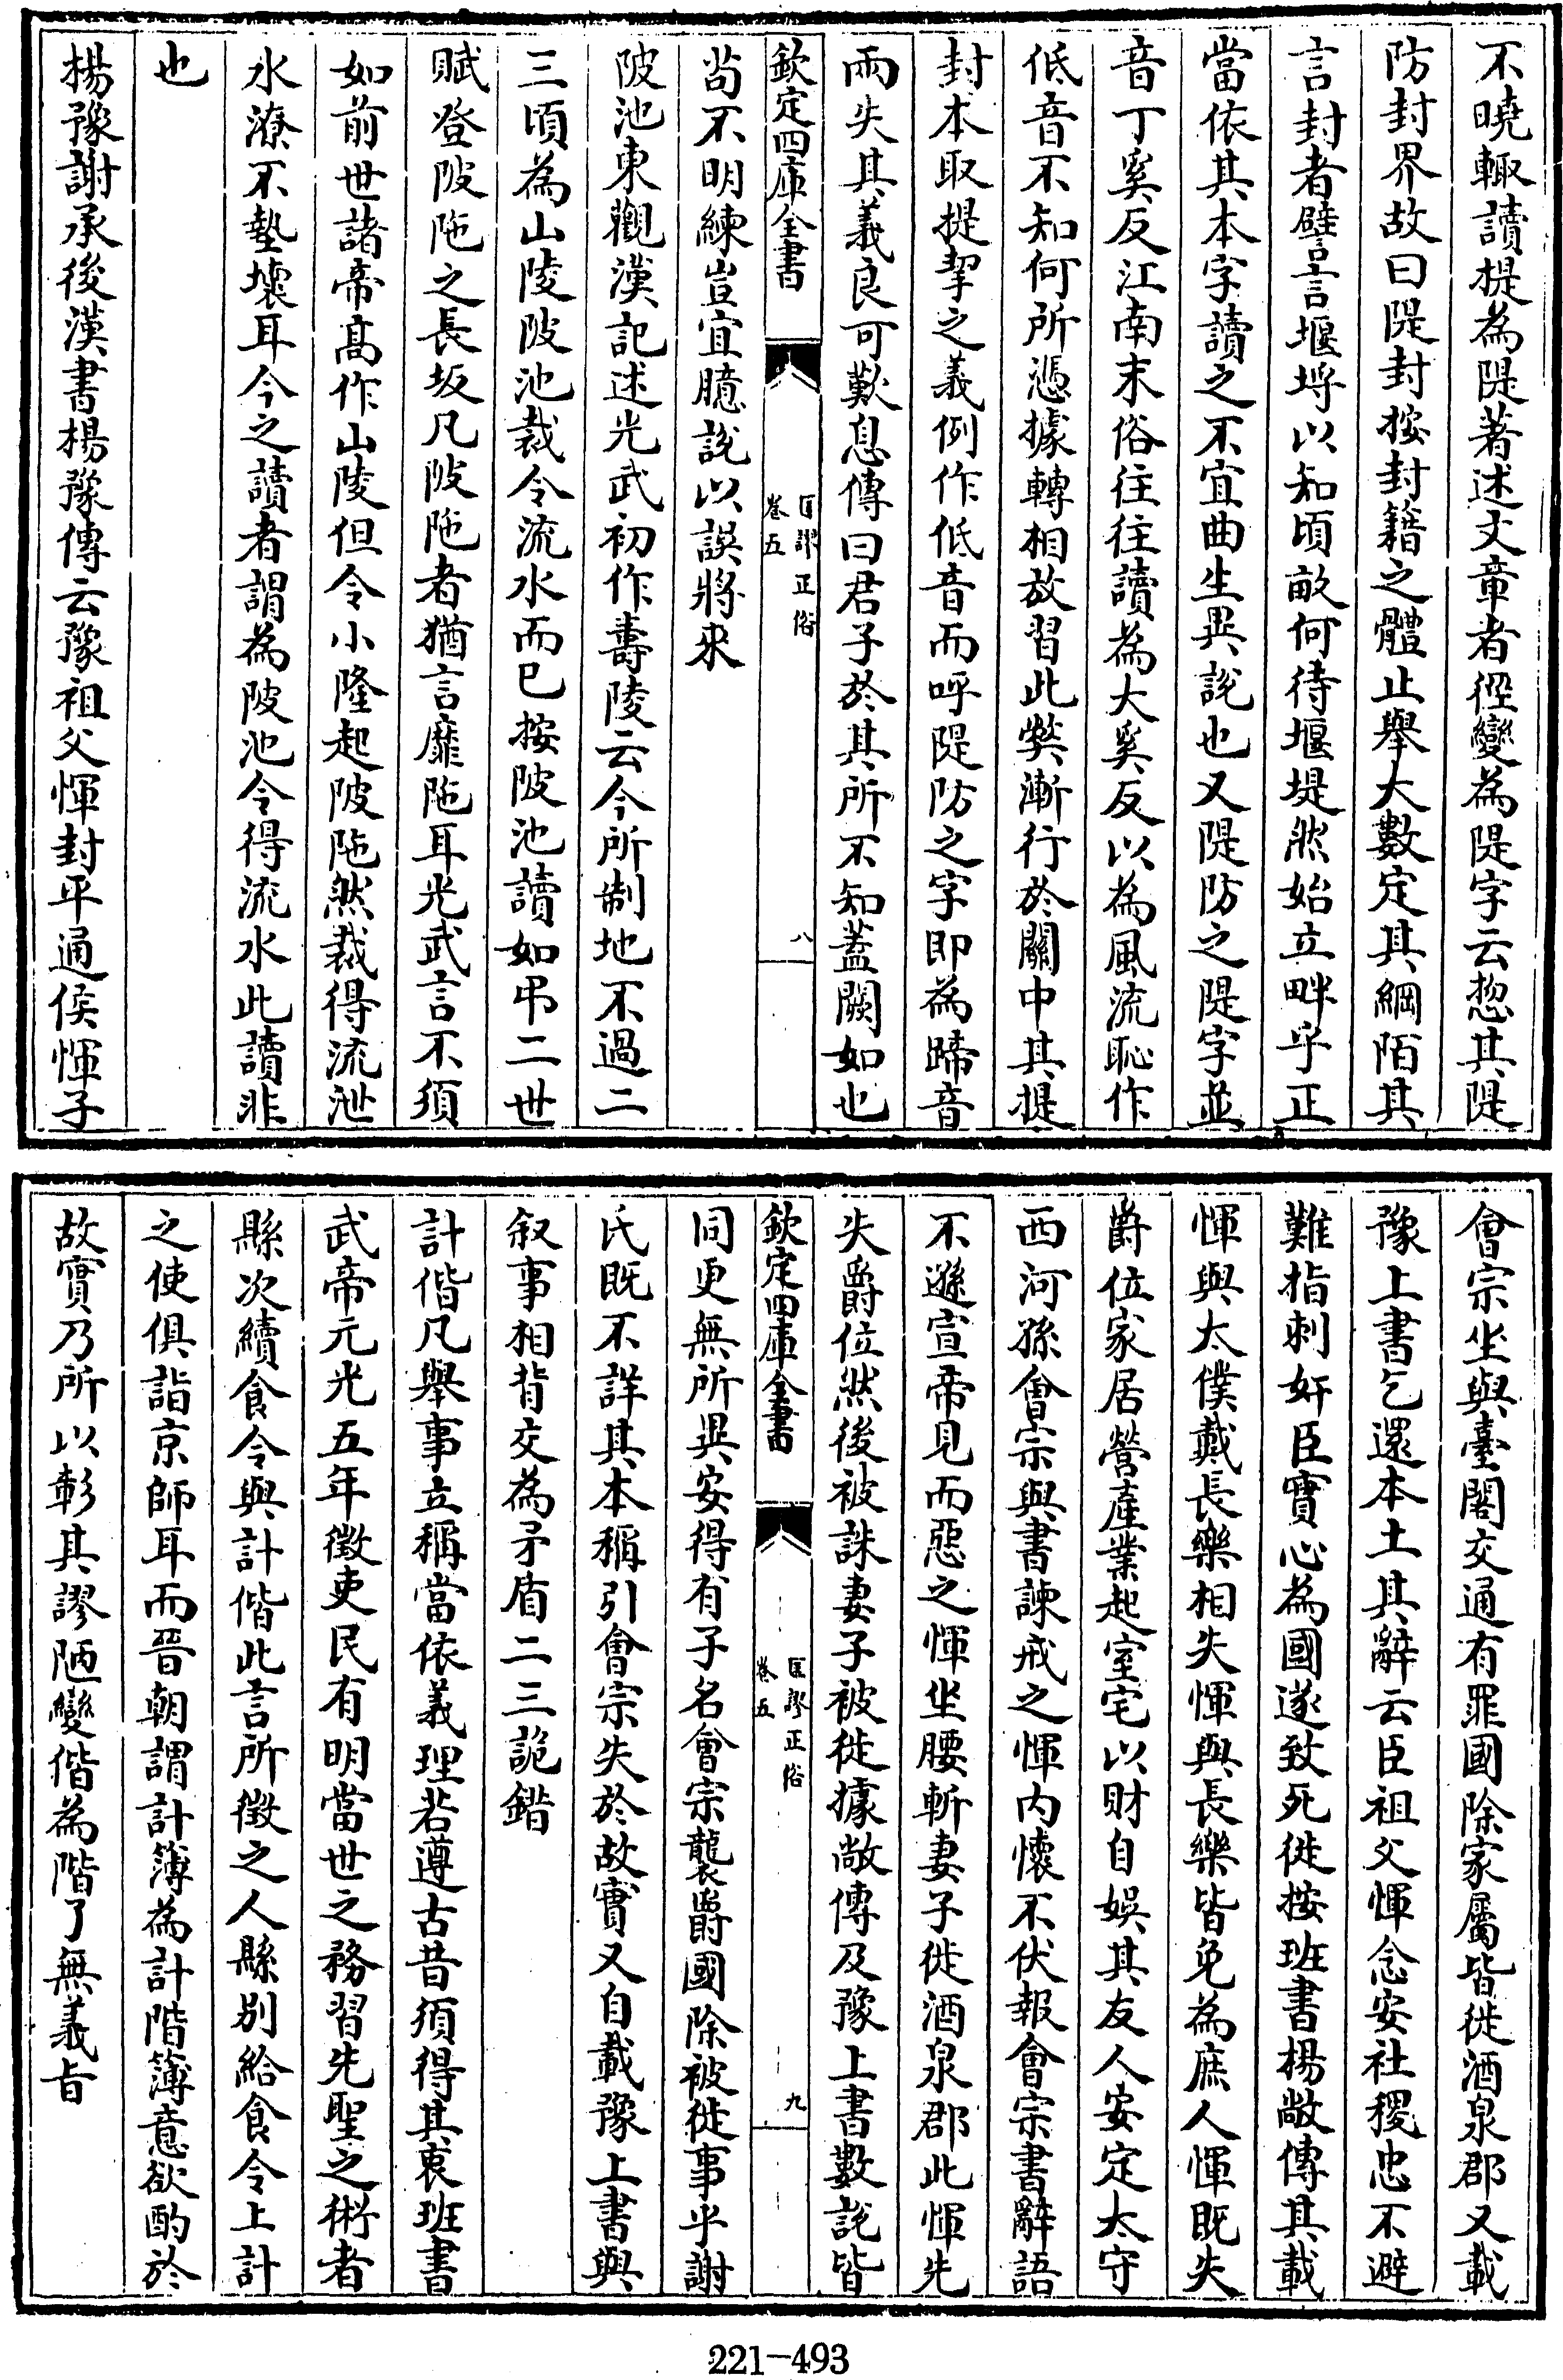 不曉輒讀提為隄著述文章者徑變為隄字云惣其隄
防封界故曰隄封按封籍之體止舉大數定其綱陌其
言封者譬言堰埒以知頃畝何待堰堤然始立畔乎正
當依其本字讀之不宜曲生異説也又隄防之隄字並
音丁奚反江南末俗往往讀為大奚反以為風流恥作
低音不知何所憑據轉相放習此弊漸行於關中其提
封本取提挈之義例作低音而呼隄防之字即為蹄音
兩失其義良可歎息傳曰君子於其所不知蓋闕如也
欽定四庫全書
匡謬正俗
卷五
八
茍不明練豈宜臆説以誤將來
陂池東觀漢記述光武初作壽陵云今所制地不過二
三頃為山陵陂池裁令流水而已按陂池讀如弔二世
賦登陂陁之長坂凡陂陁者猶言靡陁耳光武言不須
如前世諸帝髙作山陵但令小隆起陂陁然裁得流泄
水潦不墊壞耳今之讀者謂為陂池令得流水此讀非
也
楊豫謝承後漢書楊豫傳云豫祖父惲封平通侯惲子
會宗坐與臺閣交通有罪國除家屬皆徙酒泉郡又載
豫上書乞還本土其辭云臣祖父惲念安社稷忠不避
難指刺奸臣實心為國遂致死徙按班書楊敞傳其載
惲與太僕戴長樂相失惲與長樂皆免為庶人惲既失
爵位家居營產業起室宅以財自娛其友人安定太守
西河孫會宗與書諫戒之惲内懷不伏報會宗書辭語
不遜宣帝見而惡之惲坐腰斬妻子徙酒泉郡此惲先
失爵位然後被誅妻子被徙據敞傳及豫上書數説皆
欽定四庫全書
匡謬正俗
卷五
九
同更無所異安得有子名會宗襲爵國除被徙事乎謝
氏既不詳其本稱引會宗失於故實又自載豫上書與
叙事相背交為矛盾二三詭錯
計偕凡舉事立稱當依義理若遵古昔須得其衷班書
武帝元光五年徵吏民有明當世之務習先聖之術者
縣次續食令與計偕此言所徵之人縣别給食令上計
之使俱詣京師耳而晉朝謂計簿為計階簿意欲酌於
故實乃所以彰其謬陋變偕為階了無義旨
221-493